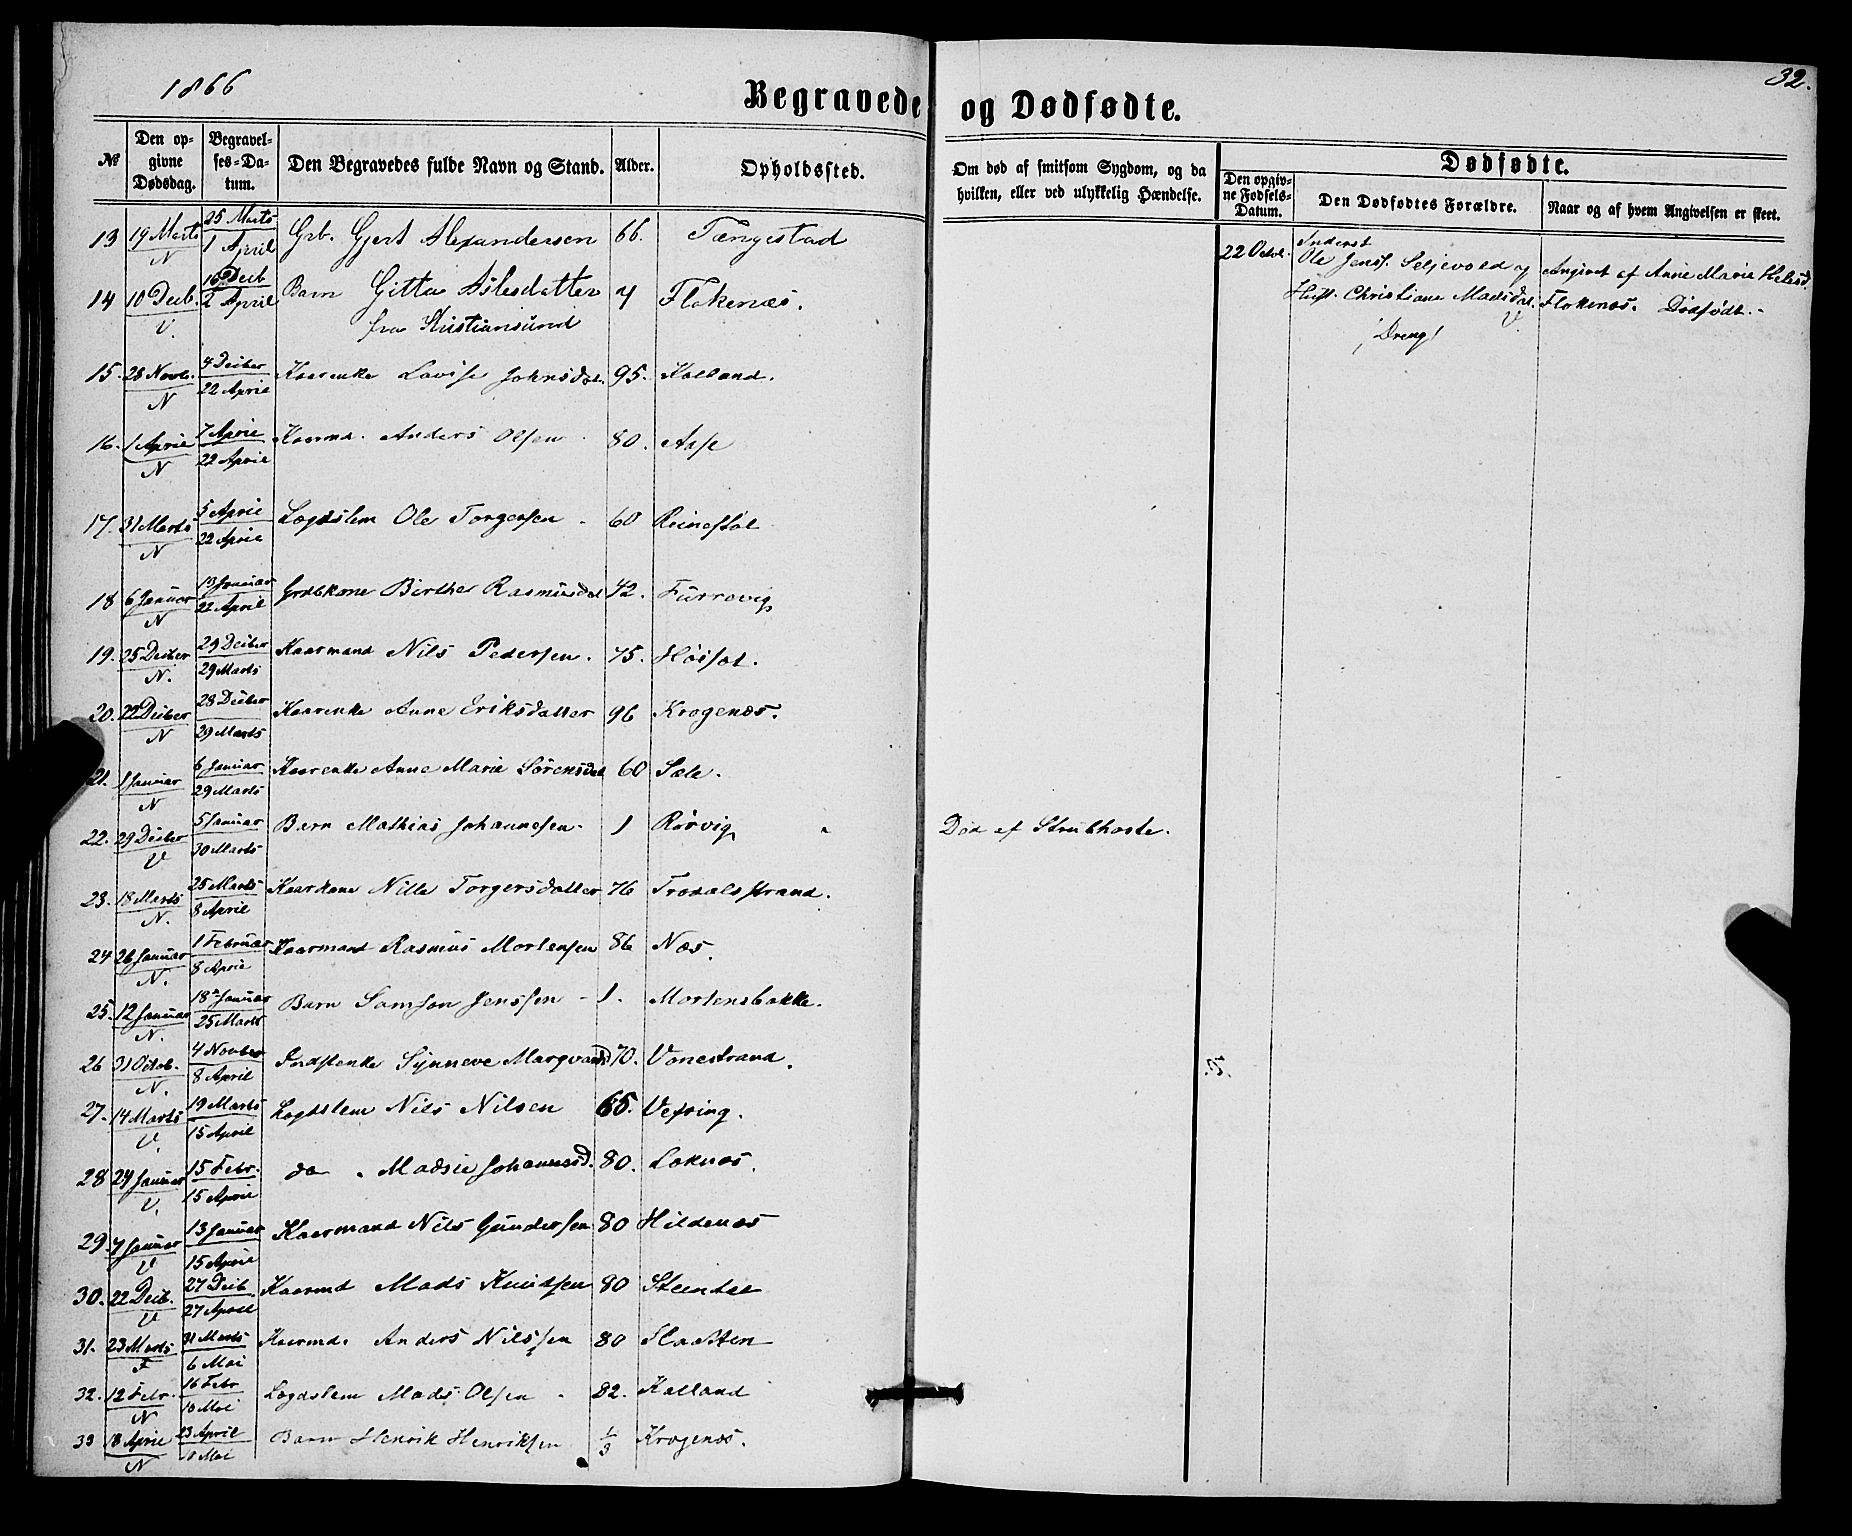 1866
Begravede og Dødfødte.
32.
№
Den opgivne Dødsdag.
Begravelses=Datum.
Den Begravedes fulde Navn og Stand.
Alder.
Opholdssted.
Om død af smitsom Sygdom, og da hvilken, eller ved ulykkelig Hændelse.
Dødfødte.
Den opgivne Fødsels=Datum.
Den Dødfødtes Forældre.
Naar og af hvem Angivelsen er skeet.
13 19 Marts N 25 Marts 1 April Grb. Gjert Alexandersen 66. Tængestad
14 10 Decb. V. 16 Decb 2 April Barn Gitta Aslesdatter 4 Flokenæs.
fra Kristiansund
15. 28 Novb. N 4 Decber 22 April Kaarenke Lovise Johnsdat. 95. Kalland.
16. 1 April N 7 April 22 April Kaarmd. Anders Olsen 80. Aase
17. 31 Marts N 5 April 22 April Lægdslem Ole Torgersen 60 Reinestøl
18 6 Januar N 13 Januar 22 April Grdbkone Birthe Rasmusdat 42. Furrevig
19. 25 Decber N. 29 Decber 29 Marts Kaarmand Nils Pedersen. 75.
20. 22 Decber N 28 Decber 29 Marts Kaarenke Anne Eriksdatter 96 Krogenæs.
21. 1 Januar N 6 Januar 29 Marts Kaarenke Anne Marie Sørensdat 60 Sæle.
22. 29 Decber V 5 Januar 30 Marts Barn Mathias Johannesen. 1 Rørvig Død af Strubhoste.
23. 18 Marts N. 25 Marts 8 April Kaarkone Nille Torgersdatter 76 Trodalsstrand.
24 26 Januar N. 1 Februar 8 April Kaarmand Rasmus Mortensen 86 Næs.
25. 12 Januar N. 18 Januar 25 Marts Barn Samson Jenssen - 1. Mortensbakke.
26 31 Octob. N. 4 Novber 8 April Indstenke Synneve 70. Vonestrand.
27. 14 Marts V. 19 Marts 15 April Lægdslem Nils Nilsen 65. Vefring.
28 24 Januar V. 15 Febr. 15 April do. Madsie Johannesd. 80. Loknæs.
29. 7 Januar V 13 Januar 15 April Kaarmand Nils Gundersen 80 Hildenæs
30. 22 Decb. V 27 Decb 27 April Kaarmd Mads Knudsen 80
31. 23 Marts F 31 Marts 6 Mai Kaarmd. Anders Nilssen 80 Slaatten
32. 12 Febr. N 16 Febr 10 Mai Lægdslem Mads Olsen 82. Kalland
33 18 April N 23 April Mai Barn Henrik Henriksen 1/3 Krogenæs.
22 Octob.
Inderst
Ole Jenss. Seljevold og
Hust. Christiane Madsdat. V.
Dreng
Angivet af Anne Marie
Flokenæs. Dødfødt.